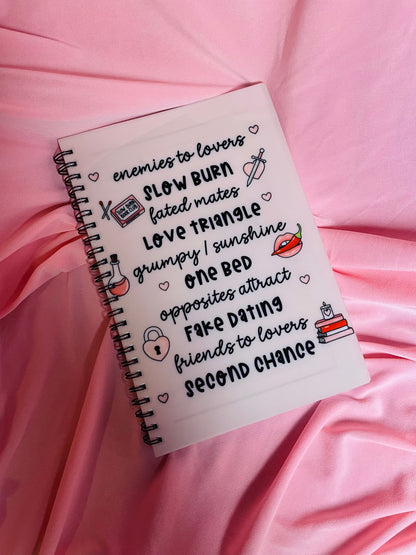 enemies to lovers
SLOW BURN
fated mates
LOVE TRIANGLE
grumpy / sunshine
ONE BED
opposites attract
FAKE DATING
friends to lovers
SECOND CHANCE